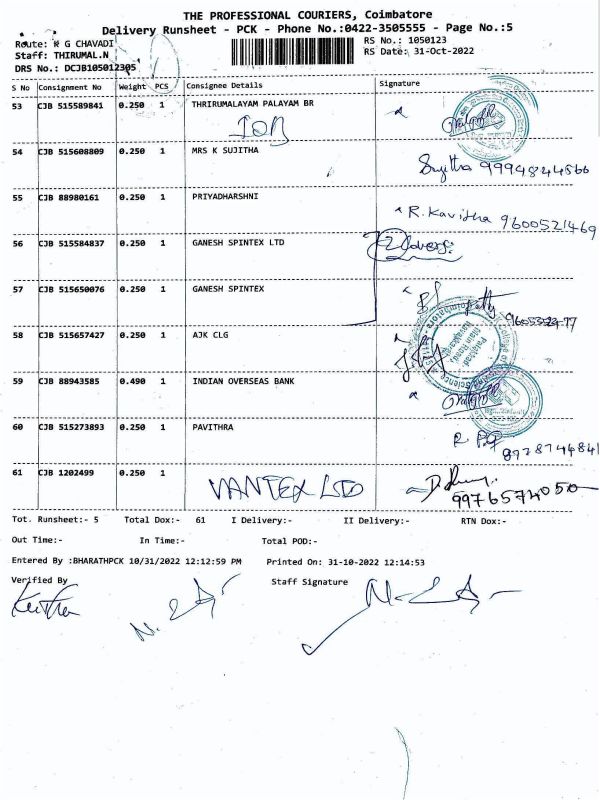 THE PROFESSIONAL COURIERS, Coimbatore
Delivery Runsheet - PCK - Phone No.:0422-3505555 - Page No.:5
Route: K G CHAVADI
RS No.: 1050123
Staff: THIRUMAL.N
RS Date: 31-Oct-2022
DRS No.: DCJB105012305
S No Consignment No Weight PCS Consignee Details Signature
53 CJB 515589841 0.250 1 THRIRUMALAYAM PALAYAM BR
IOB
54 CJB 515608809 0.250 1 MRS K SUJITHA
Sujitha 9994844566
55 CJB 88980161 0.250 1 PRIYADHARSHNI
R. Kavitha 9600521469
56 CJB 515584837 0.250 1 GANESH SPINTEX LTD
57 CJB 515650076 0.250 1 GANESH SPINTEX
58 CJB 515657427 0.250 1 AJK CLG
Palakkad
Main Road,
59 CJB 88943585 0.490 1 INDIAN OVERSEAS BANK
60 CJB 515273893 0.250 1 PAVITHRA
61 CJB 1202499 0.250 1
VANTEX LTD
9976574050
Tot. Runsheet:- 5 Total Dox:- 61 I Delivery:- II Delivery:- RTN Dox:-
Out Time:- In Time:- Total POD:-
Entered By :BHARATHPCK 10/31/2022 12:12:59 PM Printed On: 31-10-2022 12:14:53
Verified By Staff Signature